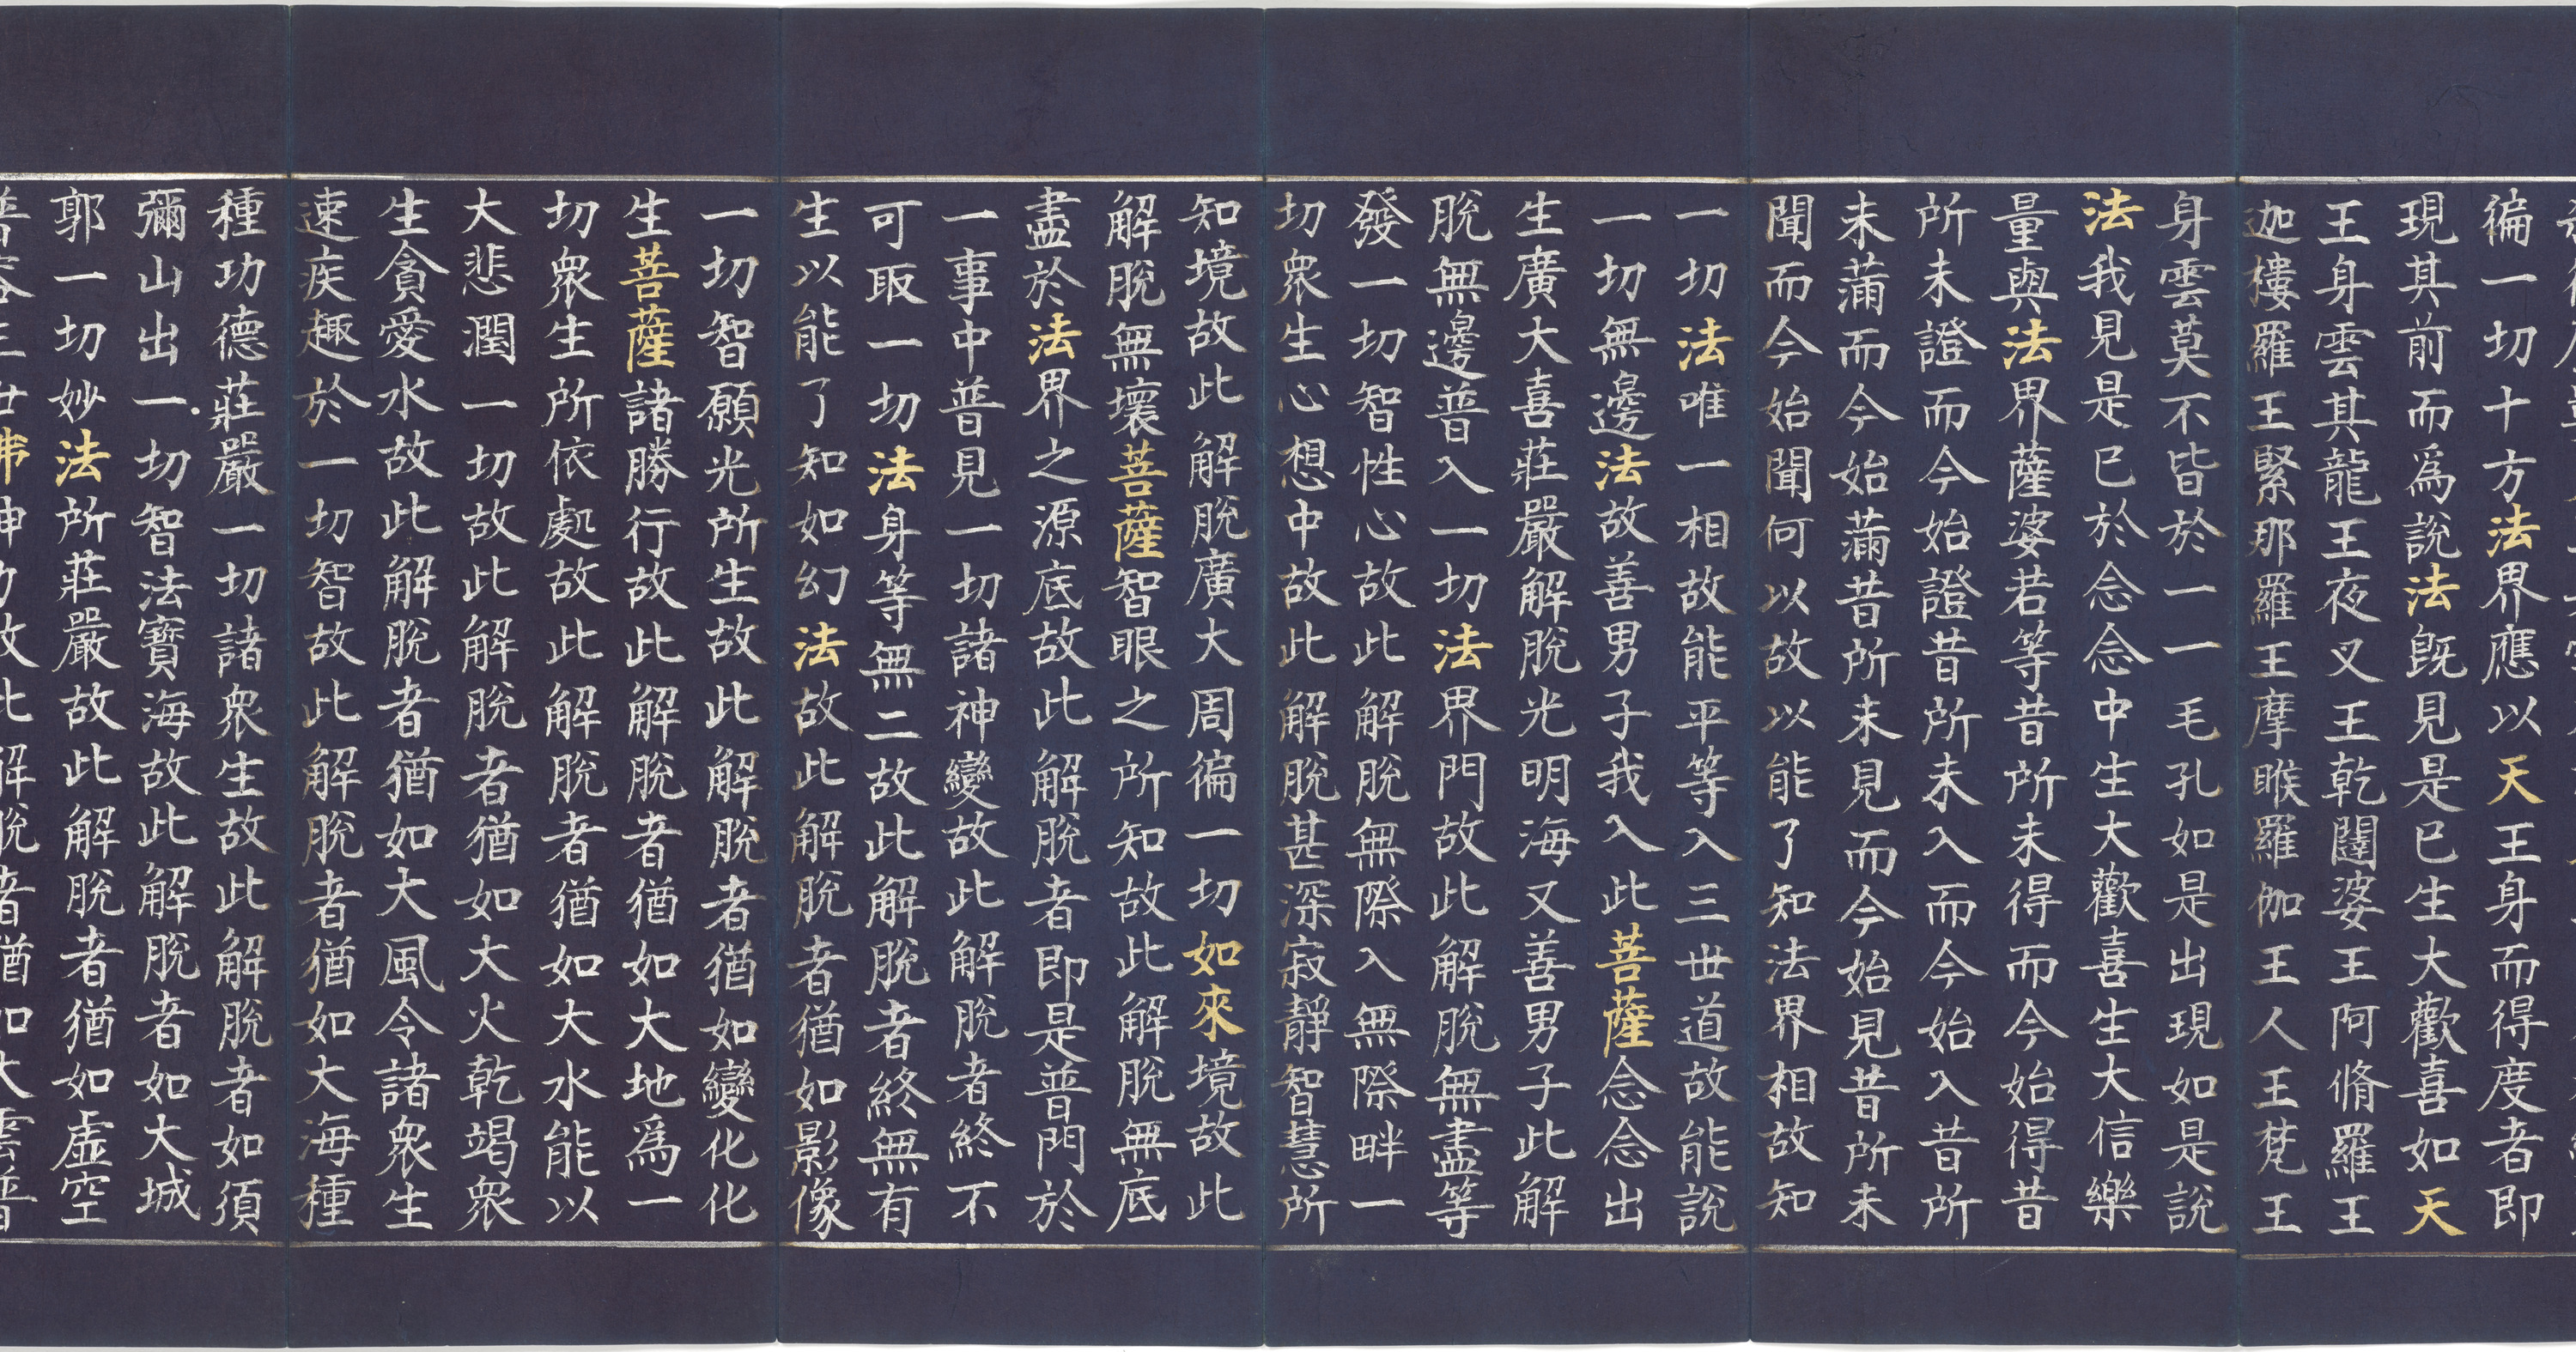 徧一切十方法界應以天王身而得度者即
現其前而爲說法旣見是已生大歡喜如天
王身雲其龍王夜叉王乾闥婆王阿脩羅王
迦樓羅王緊那羅王摩睺羅伽王人王梵王
身雲莫不皆於一一毛孔如是出現如是說
法我見是已於念念中生大歡喜生大信樂
量與法界薩婆若等昔所未得而今始得昔
所未證而今始證昔所未入而今始入昔所
未滿而今始滿昔所未見而今始見昔所未
聞而今始聞何以故以能了知法界相故知
一切法唯一相故能平等入三世道故能說
一切無邊法故善男子我入此菩薩念念出
生廣大喜莊嚴解脫光明海又善男子此解
脫無邊普入一切法界門故此解脫無盡等
發一切智性心故此解脫無際入無際畔一
切衆生心想中故此解脫甚深寂靜智慧所
知境故此解脫廣大周徧一切如來境故此
解脫無壞菩薩智眼之所知故此解脫無底
盡於法界之源底故此解脫者即是普門於
一事中普見一切諸神變故此解脫者終不
可取一切法身等無二故此解脫者終無有
生以能了知如幻法故此解脫者猶如影像
一切智願光所生故此解脫者猶如變化化
生菩薩諸勝行故此解脫者猶如大地爲一
切衆生所依處故此解脫者猶如大水能以
大悲潤一切故此解脫者猶如大火乾竭衆
生貪愛水故此解脫者猶如大風令諸衆生
速疾趣於一切智故此解脫者猶如大海種
種功德莊嚴一切諸衆生故此解脫者如須
彌山出一切智法寶海故此解脫者如大城
郭一切妙法所莊嚴故此解脫者猶如虛空
普容三世佛神力故此解脫者猶如大雲普